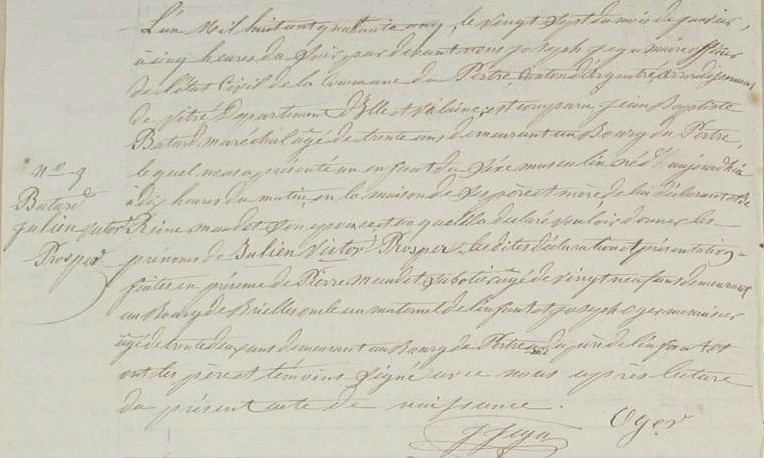 L'an Mil huit cent quarante cinq, le vingt sept du mois de janvier,
à cinq heures du soir, par devant nous joseph jegu maire officier
de l'état Civil de la Commune du Pertre, Canton d'argentré, arrondissement
de vitré Département d'Ille et vilaine, est comparu jean Baptiste
Batard maréchal âgé de trente ans demeurant au Bourg du Pertre,
le quel nous a présenté un enfant du sexe masculin né aujourd'hui à
N° 3
Batard
julien victor
Prosper
dix heures du matin, en la maison de ses père et mère de lui déclarant et de
Reine maudet son épouse, et au quel il a déclaré vouloir donner les
prénoms de Julien Victor Prosper. Les dites déclaration et présentation
faites en présence de Pierre Maudet sabotié âgé de vingt neuf ans demeurant
au Bourg de Brielles oncle maternel de l'enfant et joseph Oger menuisier
âgé de trente deux ans demeurant au Bourg du Pertre du père de l'enfant et
ont les père et témoins signé avec nous après lecture
du présent acte de naissance.
J Jegu
Oger